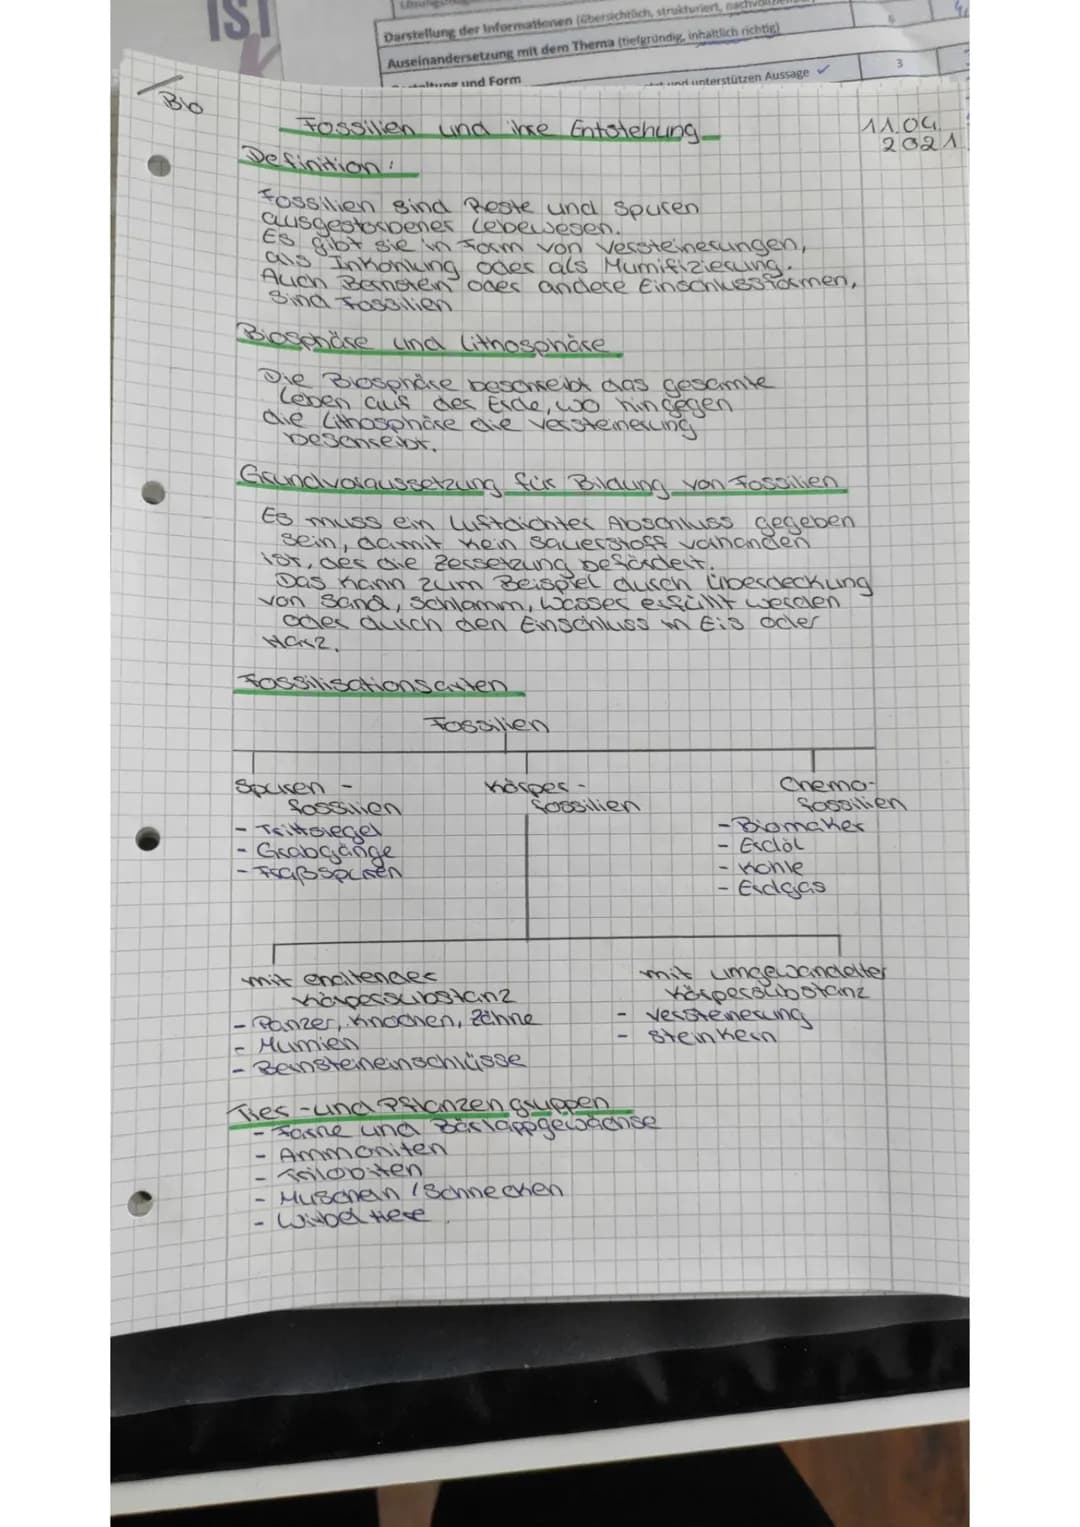 IST
Darstellung der Informationen (übersichtlich, strukturiert,
Auseinandersetzung mit dem Thema (tiefgründig, inhaltlich richtig)
und Form
und unterstützen Aussage ✓
3
Bio
Fossilien und ihre Entstehung
11.04.
2021
Definition:
Fossilien sind Reste und Spuren
ausgestorbener Lebewesen.
Es gibt sie in Form von Versteinerungen,
als Inkohlung oder als Mumifizierung.
Auch Bernstein oder andere Einschlussformen,
sind Fossilien
Biosphäre und Lithosphäre
Die Biosphäre beschreibt das gesamte
Leben auf der Erde, wo hingegen
die Lithosphäre die Versteinerung
beschreibt.
Grundvoraussetzung für Bildung von Fossilien
Es muss ein luftdichter Abschluss gegeben
sein, damit kein Sauerstoff vorhanden
ist, der die Zersetzung befördert.
Das kann zum Beispiel durch Überdeckung
von Sand, Schlamm, Wasser erfüllt werden
oder durch den Einschluss in Eis oder
Harz.
Fossilisationsarten
Fossilien
Spuren -
fossilien
- Trittsiegel
- Grabgänge
- Fraßspuren
Körper -
fossilien
Chemo-
fossilien
- Biomaker
- Erdöl
- Kohle
- Erdgas
mit erhaltender
Körpersubstanz
- Panzer, Knochen, Zähne
- Mumien
- Bernsteineinschlüsse
mit umgewandelter
Körpersubstanz
- Versteinerung
- Steinkern
Tier - und Pflanzengruppen
- Farne und Bärlappgewächse
- Ammoniten
- Trilobiten
- Muscheln / Schnecken
- Wirbeltiere